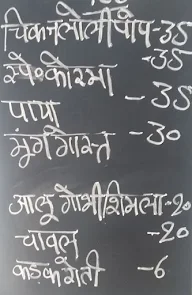 चिकनलॉलीपॉप-35
स्पे०कोरमा -35
पाया -35
मुर्ग गोश्त -30
आलू गोभी शिमला-20
चावल -20
कड़क रोटी -6